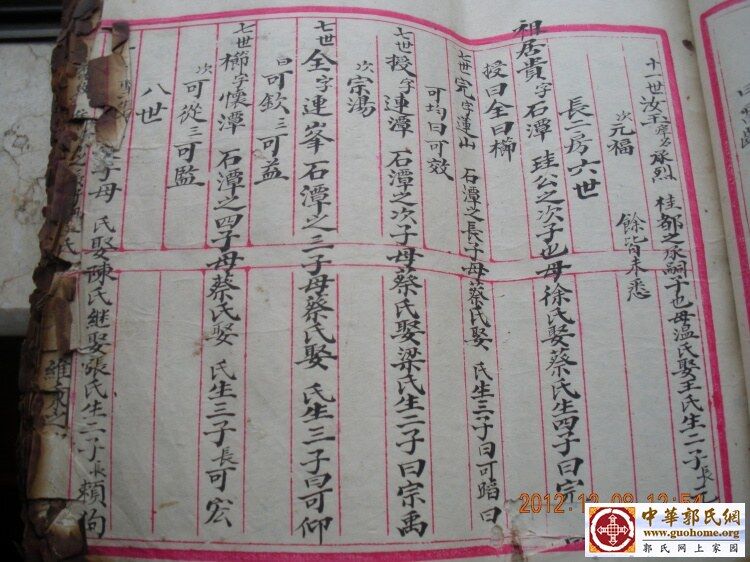 十一世汝玉 字 承烈 桂都之承嗣子也母溫氏娶王氏生二子長元
次元福 餘皆未悉
長二房六世
祖居貴字石潭 珪公之次子也母徐氏娶蔡氏生四子曰宗
授曰全曰櫛
七世完字蓮山 石潭之長子母蔡氏娶 氏生三子曰可蹈曰
可均曰可效
七世授字連潭 石潭之次子母蔡氏娶梁氏生二子曰宗禹
次宗湯
七世全字連峯 石潭之三子母蔡氏娶 氏生三子曰可仰
曰可欽三可益
七世櫛字懷潭 石潭之四子母蔡氏娶 氏生三子長可宏
次可從三可監
八世
子母 氏娶陳氏継娶張氏生二子長賴佝
2012.12.08 12:54
中華郭氏網
www.guohome.org
郭氏网上家园